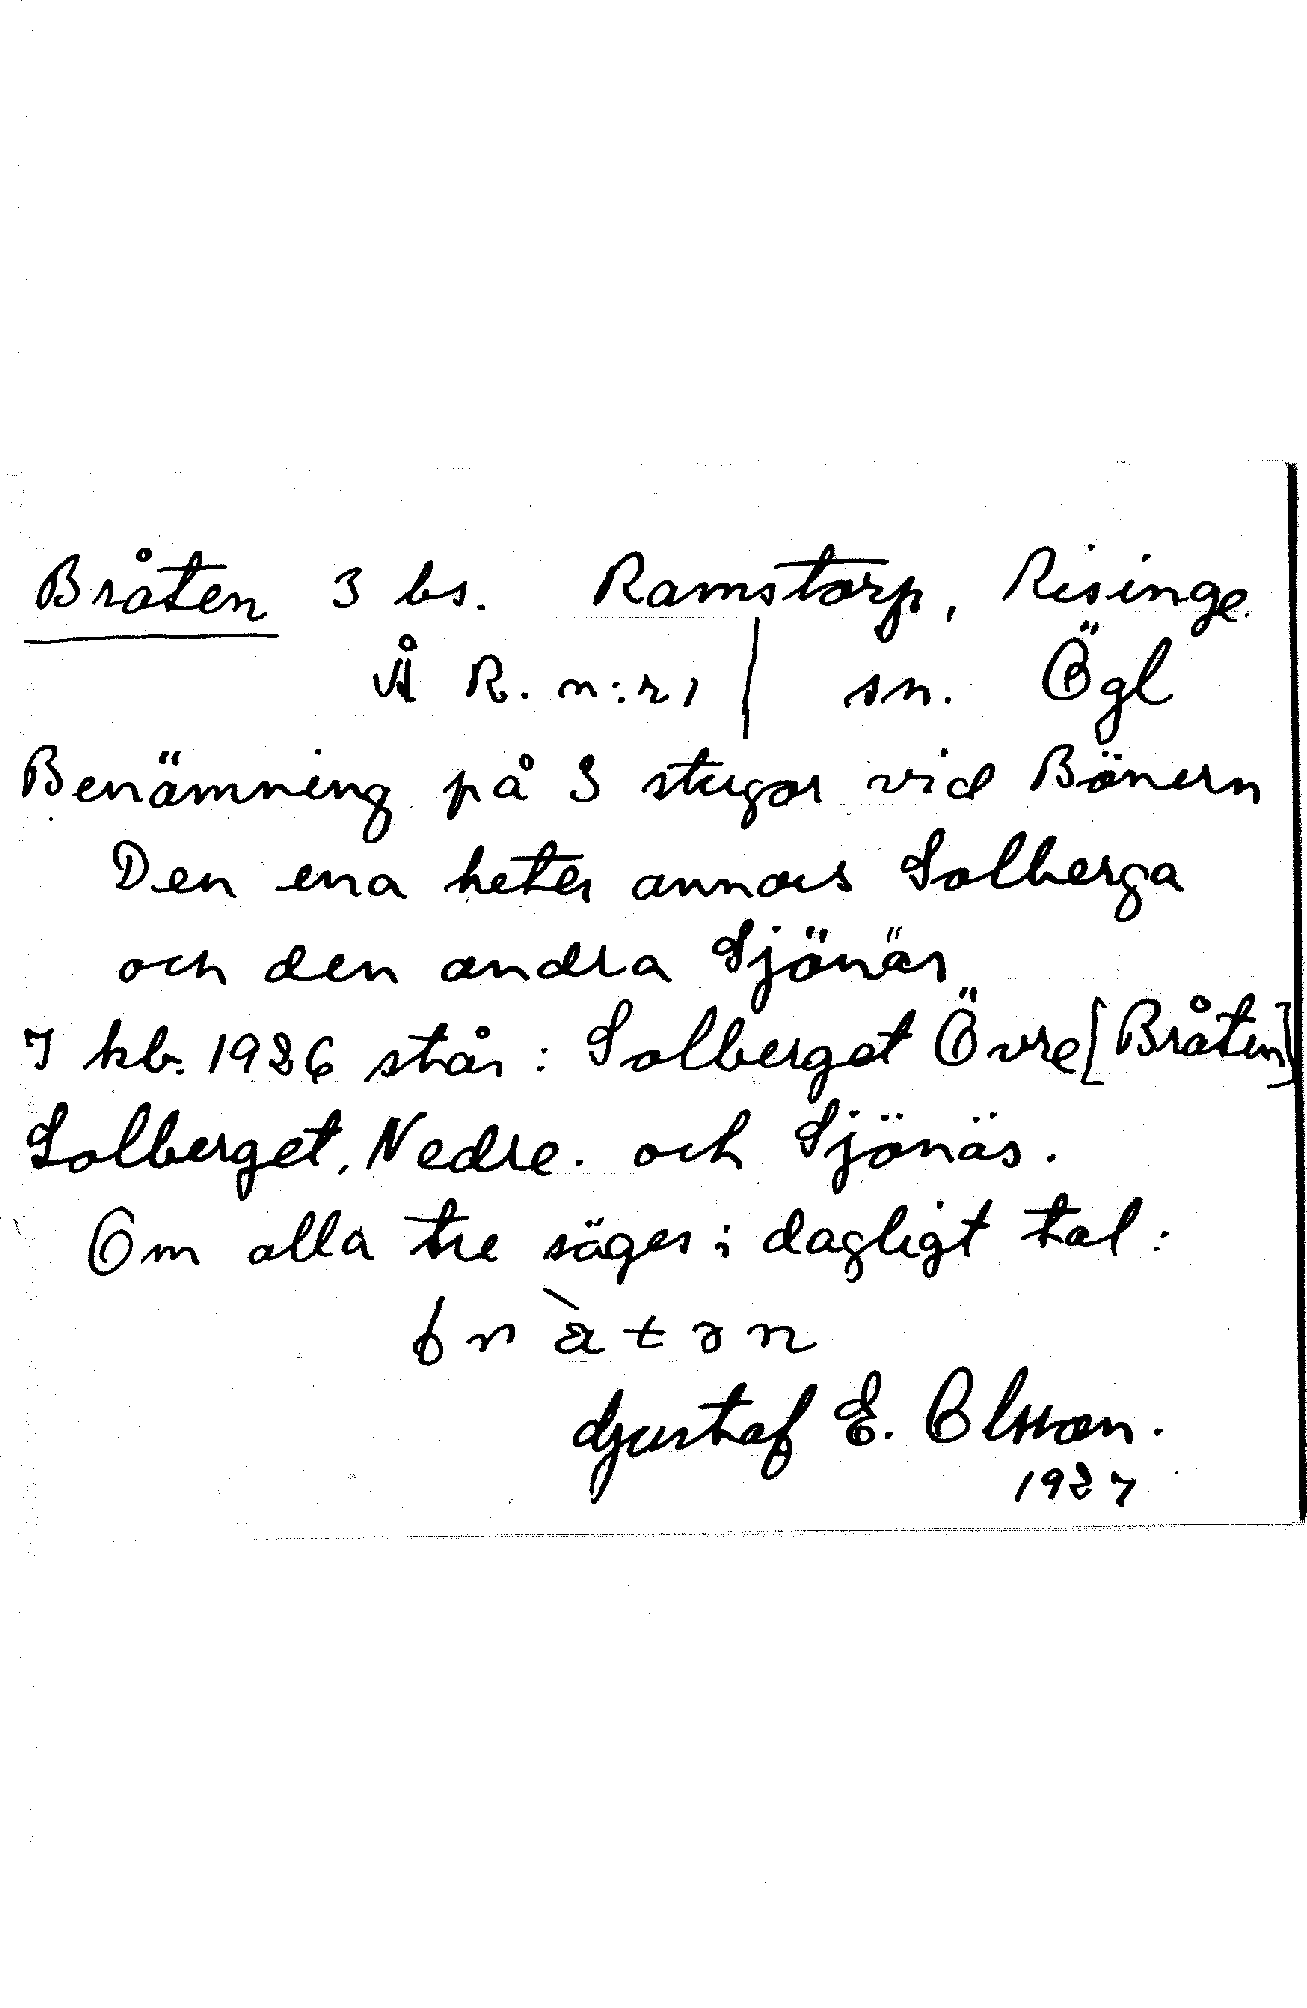 Bråten 3 bs. Ramstorp, Risinge
Å R. n:r 1 | sn. Ögl
Benämning på 3 stugor vid Bönern
Den ena heter annars Solberga
och den andra Sjönäs
I kb. 1926 står: Solberget Övre [Bråten]
Solberget, Nedre. och Sjönäs.
Om alla tre säges i dagligt tal:
bråtən
Gustaf E. Olsson.
1927